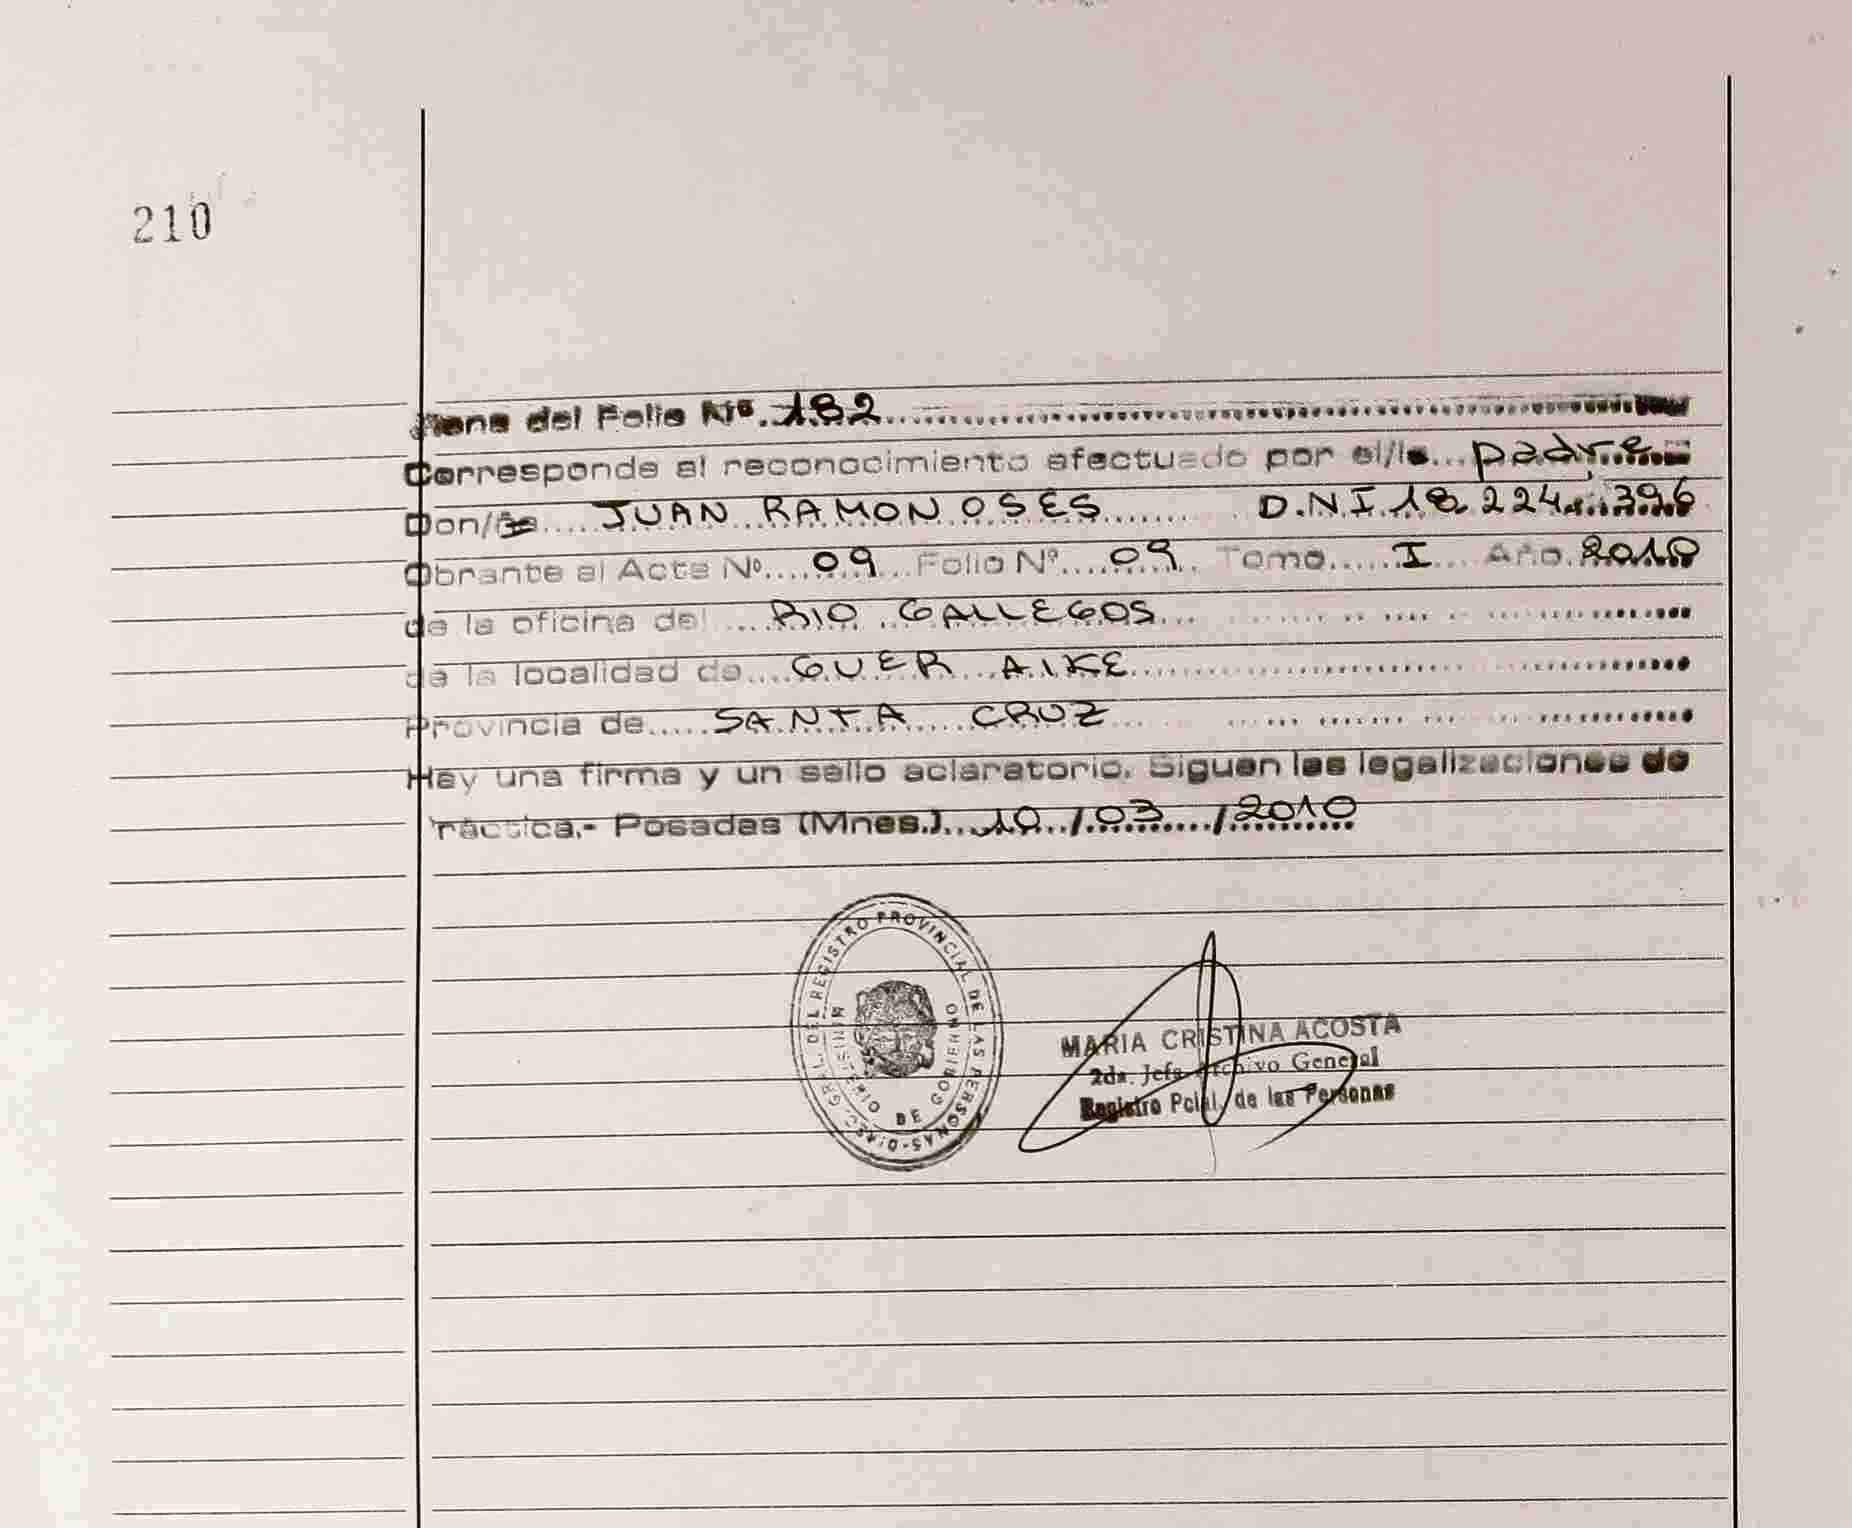 210
Viene del Folio Nº. 182
Corresponde al reconocimiento efectuado por el/la... padre
Don/ña.... JUAN RAMON OSÉS....... D.N.I. 18.224.396
Obrante al Acta Nº.... 09 ..Folio Nº.... 09 .. Tomo..... I ... Año. 2010
de la oficina del ... RIO GALLEGOS...
de la localidad de.... GUER AIKE
Provincia de..... SANTA CRUZ
Hay una firma y un sello aclaratorio. Siguen las legalizaciones de
ráctica.- Posadas (Mnes.)... 10 ../.03......./.2010
DIREC. GRAL. DEL REGISTRO PROVINCIAL DE LAS PERSONAS-
MINISTERIO DE GOBIERNO
MARIA CRISTINA ACOSTA
2da. Jefa Archivo General
Registro Pcial. de las Personas